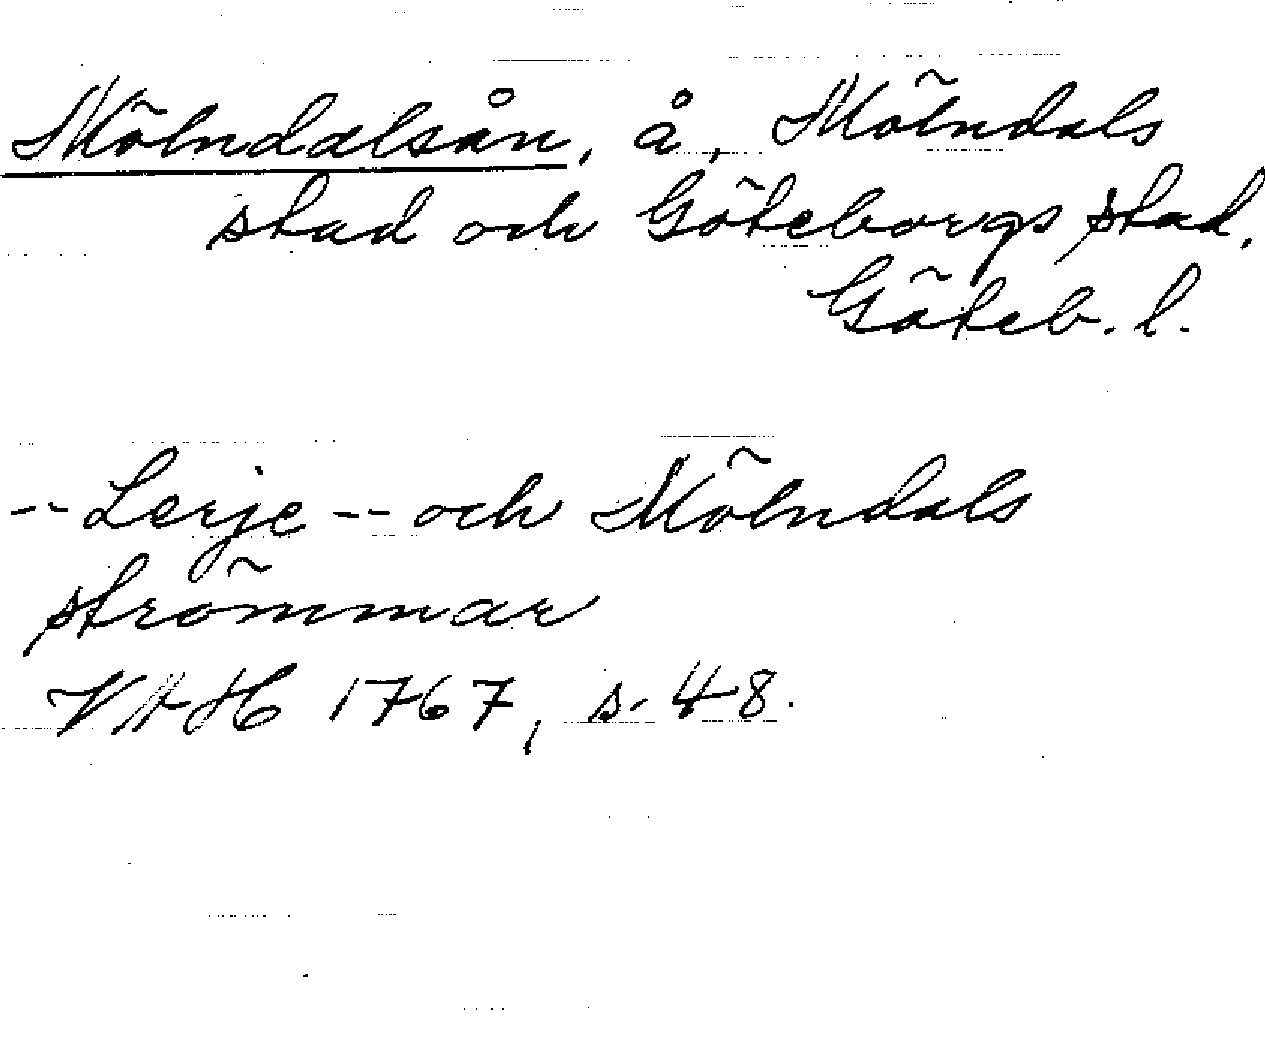 Mölndalsån, å, Mölndals
stad och Göteborgs stad,
Göteb. l.
-- Lerje -- och Mölndals
strömmar
VAH 1767, s. 48.